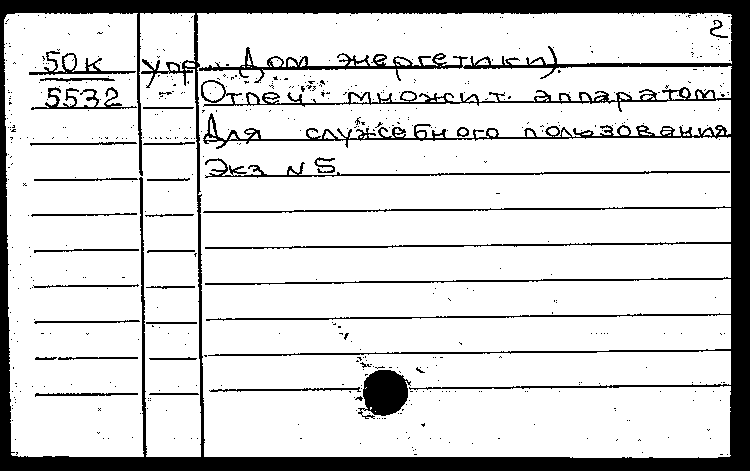 2
50к упр. Дом энергетики).
5532 Отпеч. множит. аппаратом.
Для служебного пользования
Экз N 5.